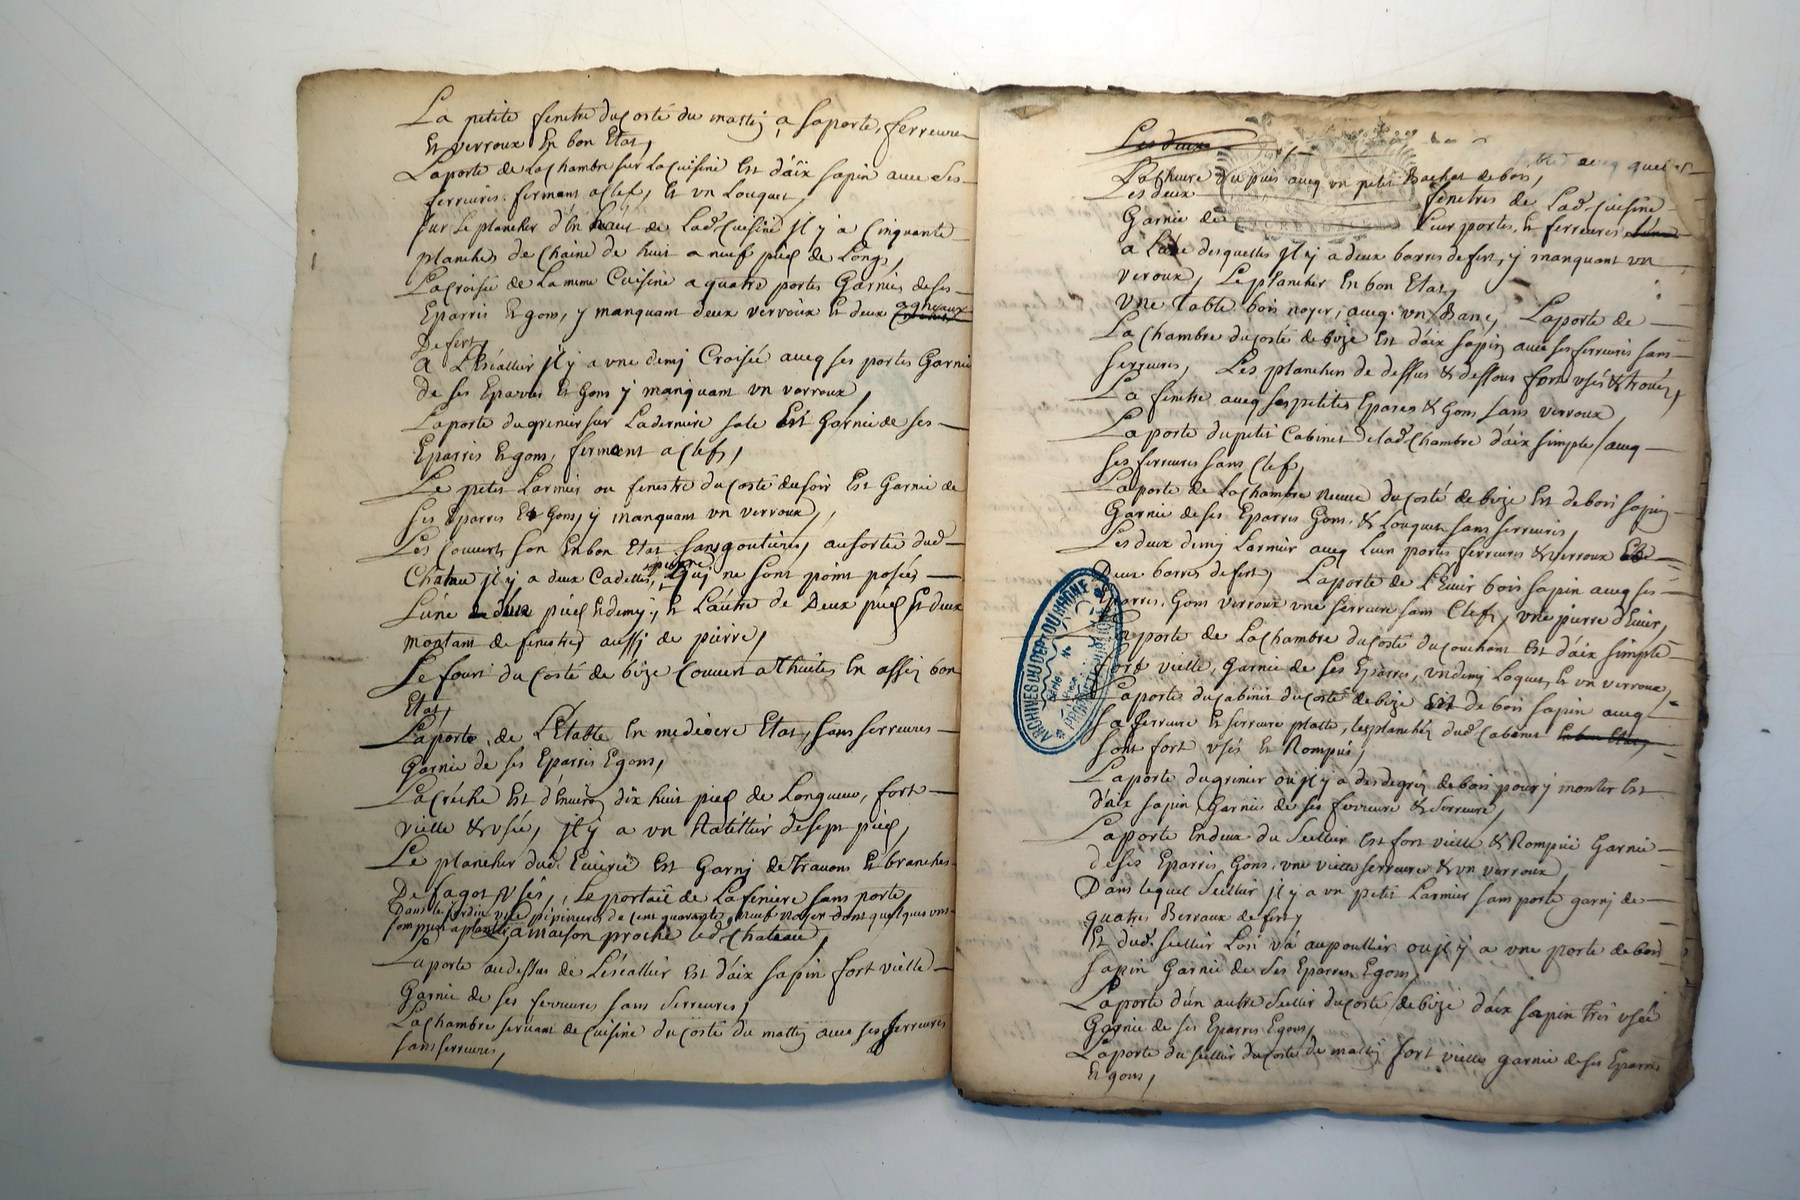 La petite fenetre du costé du mattin a sa porte, ferreure
Et verroux En bon Etat,
La porte de La chambre sur La Cuisine Est d'aix sapin avec ses
ferreures fermant a Clef, Et vn Louquet,
Sur Le plancher d'En haut de Lad. Cuisine Il y a Cinquante
planches de Chaine de huit a neuf pieds de Long,
La Croisée de La meme Cuisine a quatre portes Garnies de ses
Eparres Et gons, y manquant deux verroux Et deux
De fert,
A L'Escallier Il y a vne demy Croisée avecq ses portes Garnie
de ses Eparres Et Gons y manquant vn verroux,
La porte du grenier sur La derniere sale Est Garnie de ses
Eparres Et gons, ferment a Clefs,
Le petit Larmier ou fenestre du Costé du soir Est Garnie de
ses Eparres Et Gons, y manquant vn verroux,
Les Couverts son En bon Etat sans goutieres, au sortir dud.
Chateau Il y a deux Cadettes, de pierre qui ne sont point posées
L'une de deux pieds Et demy, et L'autre de Deux pieds Et deux
montant de fenestres aussy de pierre,
Le fourt du Costé de bize Couvert a thuiles En assez bon
Etat,
La porte de L'Etable En mediocre Etat, sans serreures
Garnie de ses Eparres Et gons,
La Créche Est d'Environ dix huit pieds de Longueur, fort
vieille & vsée, Il y a vn Ratellier de sept pieds,
Le plancher dud. Ecuirie Est Garny de travons Et branches
De fagot vsés, Le portail de La feniere sans porte,
Dans le Jardin vne pepiniere de Cent quarante neuf noyer dont quelques vns
sont pret a planter La maison proche led. Chateau,
La porte au dessus de L'escallier Est d'aix sapin fort vielle
Garnie de ses ferreures sans Serreures,
La Chambre servant de Cuisine du Costé du mattin avec ses ferreures
sans serreures,
Les deux
avecq quel
La ... du puis avecq vn petit Bachat de bois,
Les deux fenetres de Lad. Cuisine
Garnie de Leur portes, Et ferreures
a L'une desquelles Il y a deux barres de fert, y manquant vn
veroux, Le plancher En bon Etat,
Vne Table bois noyer, avecq vn Banc, La porte de
La Chambre du Costé de bize Est d'aix sapin avec ses ferreures sans
serreures, Les planchers de dessus & dessous fort vsés & troués,
La fenetre avecq ses petites Epares & Gons sans verroux,
La porte du petit Cabinet de lad. Chambre d'aix simple avecq
ses ferreures sans Clef,
La porte de La Chambre neuve du Costé de bize Est de bois sapin
Garnie de ses Eparres Gons, & Louquet sans serreures,
Les deux demy Larmier avecq Leur portes ferreures & verroux Et
Deux barres de fert, La porte de L'Evier bois sapin avecq ses
Eparres, Gons verroux vne serreure sans Clef, vne pierre d'Evier,
La porte de La Chambre du Costé du Couchant Est d'aix simple
fort vieille, Garnie de ses Eparres, vn demy Loquet, Et vn verroux,
La porte du Cabinet du Costé de bize Est de bois sapin avecq
sa ferreure Et serreure platte, les planchers dud. Cabinet En bon Etat,
sont fort vsés Et Rompus,
La porte du grenier ou Il y a des degrés de bois pour y monter Est
d'aix sapin Garnie de ses ferreure & Serreure,
La porte En deux du Sellier Est fort vieille & Rompüe Garnie
de ses Eparres Gons, vne vielle serreure & vn verroux,
Dans lequel Sellier Il y a vn petit Larmier sans porte garny de
quatres Berraux de fert,
Et dud. sellier Lon va au poullier ou Il y a vne porte de bois
sapin Garnie de ses Eparres Et gons,
La porte d'un autre Sellier du Costé de bize d'aix sapin très vsée
Garnie de ses Eparres Et gons,
La porte du sellier du Costé de mattin fort vielle garnie de ses Eparres
Et gons,
ARCHIVES DU DEPT DU RHÔNE
PROPRIÉTÉ PUBLIQUE